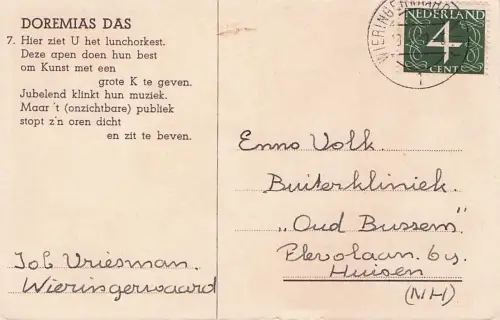 DOREMIAS DAS
7. Hier ziet U het lunchorkest.
Deze apen doen hun best
om Kunst met een
grote K te geven.
Jubelend klinkt hun muziek.
Maar 't (onzichtbare) publiek
stopt z'n oren dicht
en zit te beven.
Job Vriesman.
Wieringerwaard
WIERINGERWAARD
NEDERLAND
4
CENT
Enno Volk.
Buitenkliniek.
„Oud Bussem."
Flevolaan. by
Huisen
(NH)